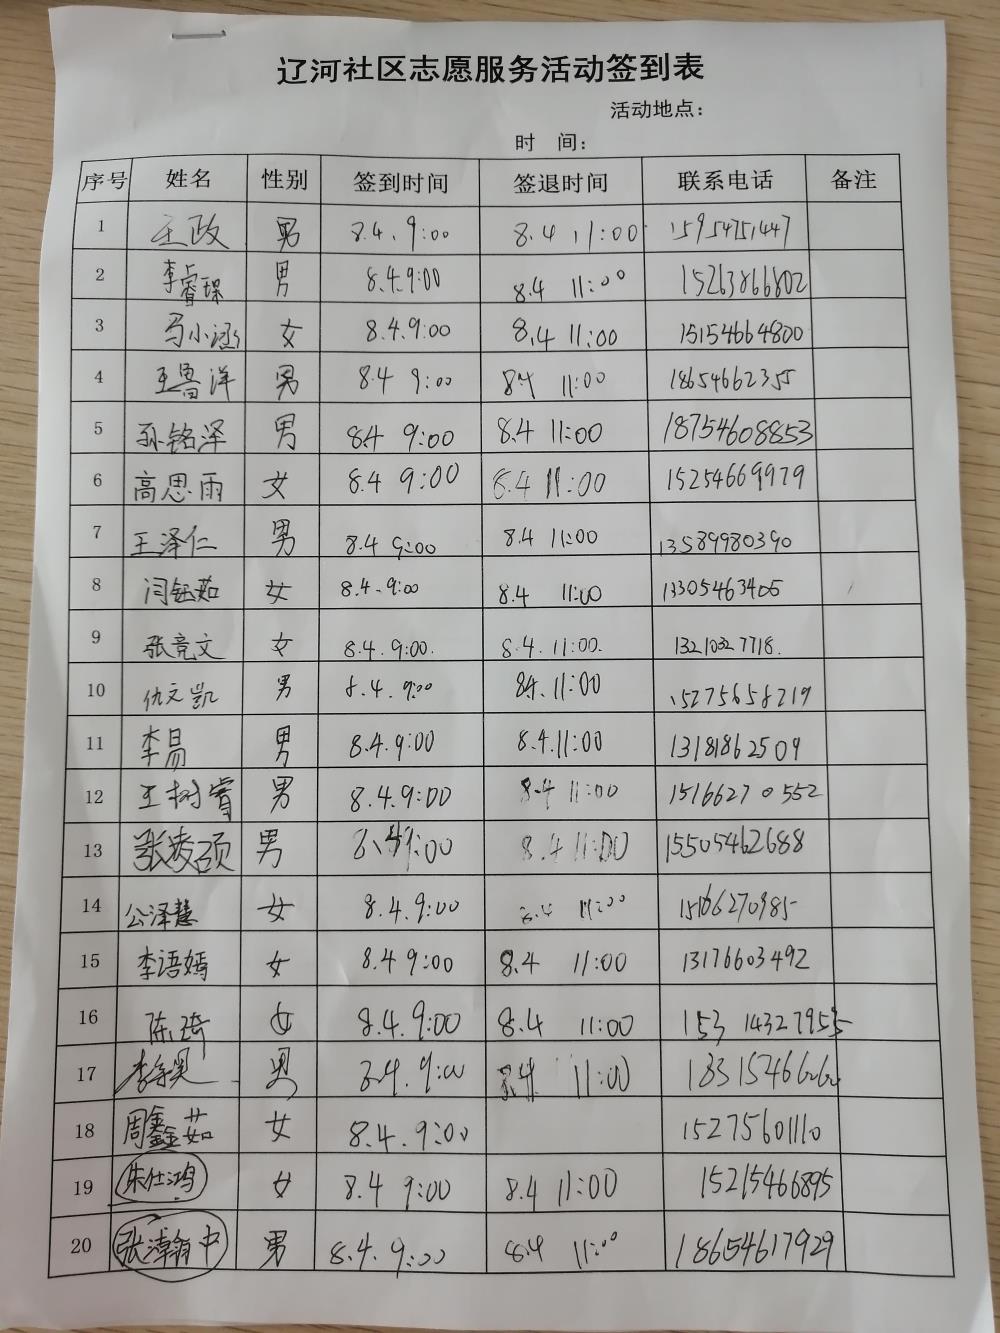 辽河社区志愿服务活动签到表
活动地点：
时 间：
序号 姓名 性别 签到时间 签退时间 联系电话 备注
1 王政 男 8.4. 9:00 8.4 11:00 15954751447
2 李睿琛 男 8.4.9:00 8.4 11:00 15263866802
3 马小涵 女 8.4.9:00 8.4 11:00 15154664800
4 王鲁洋 男 8.4 9:00 8.4 11:00 18654662355
5 孙铭泽 男 8.4 9:00 8.4 11:00 18754608853
6 高思雨 女 8.4 9:00 8.4 11:00 15254669979
7 王泽仁 男 8.4 9:00 8.4 11:00 13589980390
8 闫钰茹 女 8.4.9:00 8.4 11:00 13305463405
9 张竞文 女 8.4.9:00. 8.4.11:00. 13210327718.
10 仇文凯 男 8.4.9:00 8.4.11:00 15275658219
11 李昜 男 8.4.9:00 8.4.11:00 13181862509
12 王树睿 男 8.4.9:00 8.4 11:00 15166270552
13 张凌硕 男 8.4 9:00 8.4 11:00 15505462688
14 公泽慧 女 8.4.9:00 8.4 11:00 15166270985
15 李语嫣 女 8.4 9:00 8.4 11:00 13176603492
16 陈琦 女 8.4.9:00 8.4 11:00 153 14327955
17 男 8.4.9:00 8.4 11:00 18315466262
18 周鑫茹 女 8.4.9:00 15275601110
19 朱仕鸿 女 8.4 9:00 8.4 11:00 15215466895
20 男 8.4.9:00 8.4 11:00 18654617929